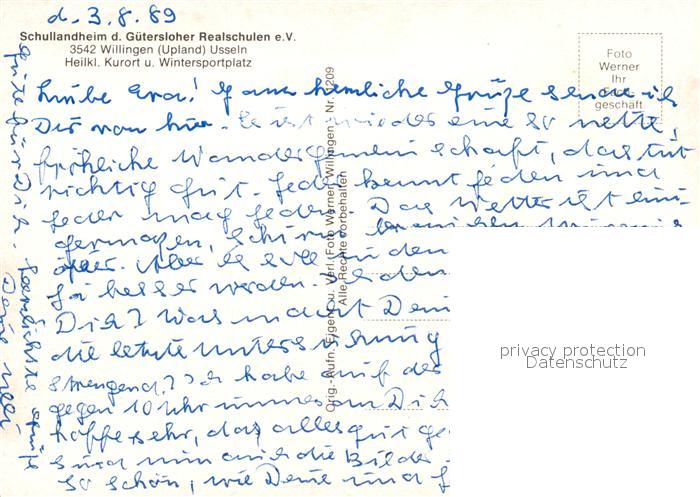 d. 3.8.89
Schullandheim d. Gütersloher Realschulen e.V.
3542 Willingen (Upland) Usseln
Heilkl. Kurort u. Wintersportplatz
Foto
Werner
Ihr
geschäft
Orig.-Aufn. Eigent. u. Verl. Foto Werner, Willingen Nr. 1209
Alle Rechte vorbehalten
Liebe Eva! Ganz herzliche Grüße sende ich
Dir von hier. Es ist wieder eine so nette,
fröhliche Wandergemeinschaft, das tut
richtig gut. Jeder kennt jeden und
jeder mag jeden. Das Wetter ist eini-
germaßen,
Aber es soll in den
ja besser werden.
Dich? Was macht Dein
die letzte Untersuchung
strengend? Ich habe auf der
gegen 10 Uhr immer an Dich
hoffe sehr, das alles gut ge
sind nun auch die Bilder
so schön, wie Deine und
Gute für Dich. Herzlichste Grüße
Deine
privacy protection
Datenschutz